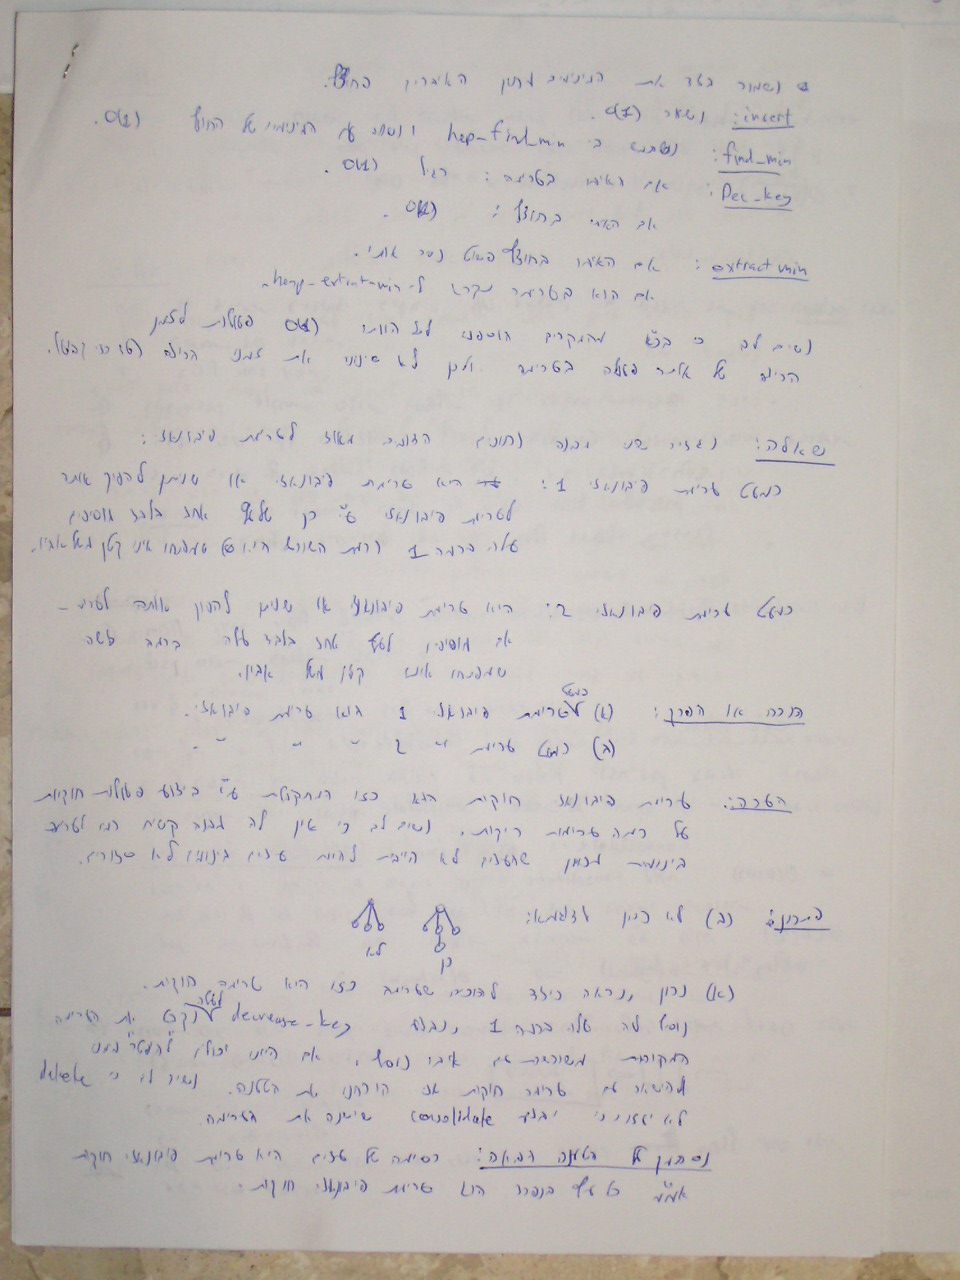 נשמור בצד את המינימום מתוך האיברים בחוץ.
insert: נשאר O(1).
find_min: נשתמש ב heap-find_min ונסתכל על המינימום של החוץ O(1).
Dec_key: אם האיבר בערימה: רגיל O(1).
אם האיבר בחוץ: O(1).
extract min: אם האיבר בחוץ פשוט נסיר אותו.
אם הוא בערימה נקרא ל- heap-extract-min.
נשים לב כי בכל המקרים הוספנו לכל היותר O(1) פעולות לזמן
הריצה של אותה פעולה בערימה ולכן לא שינינו את זמני הריצה
שאלה: נגדיר שני מבנה נתונים הדומה מאוד לערימת פיבונאצי:
כמעט ערימת פיבונאצי 1: היא ערימת פיבונאצי או שניתן להפוך אותה
לערימת פיבונאצי ע"י כך שלעץ אחד בלבד מוסיפים
עלה ברמה 1 (רמת השורש היא 0) שמפתחו אינו קטן משל אביו.
כמעט ערימת פיבונאצי 2: היא ערימת פיבונאצי או שניתן להפוך אותה לערימה
אם מוסיפין לעץ אחד בלבד עלה ברמה כלשהי
שמפתחו אינו קטן משל אביו.
הוכח או הפרך: (א) כמעט ערימת פיבונאצי 1 היא ערימת פיבונאצי.
(ב) כמעט ערימת " 2 " " "
הערה: ערימת פיבונאצי חוקית היא כזו המתקבלת ע"י ביצוע פעולות חוקיות
על כמה ערימות ריקות. נשים לב כי אין לה מבנה קשיח כמו לערימה
בינומית מכיוון שהעצים לא חייבים להיות עצים בינומים ולא סדורים.
פתרון: (ב) לא נכון לדוגמא:
לא כן
(א) נכון, נראה כיצד להוכיח שערימה כזו היא ערימה חוקית.
נוסיף לה עלה ברמה 1, נבצע decrease-key ונקבל את הערימה
המקורית משורשרת עם איבר נוסף. אם היינו יכולים "להעלים" ממנו
ולהישאר עם ערימה חוקית אז הוכחנו את הטענה. נשים לב כי delete
לא יעזור כי יבוצע consolidate שישנה את הערימה
נסתמך על הטענה הבאה: רשימה של עצים היא ערימת פיבונאצי חוקית
אמ"מ כל עץ בנפרד הוא ערימת פיבונאצי חוקית.